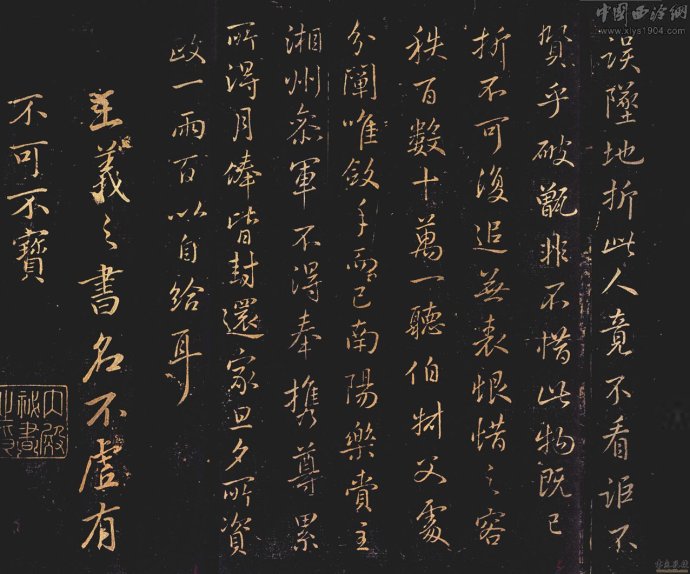 誤墜地折此人竟不看詎不
賢乎破甑非不惜此物既已
折不可復追無表恨惜之容
秩百數十萬一聽伯叔父處
分闡唯斂手而已南陽樂賞主
湘州參軍不得奉攜尊累
所得月俸皆封還家旦夕所資
政一兩百以自給耳
王羲之書名不虛有
不可不寶
中國西泠網
www.xlys1904.com